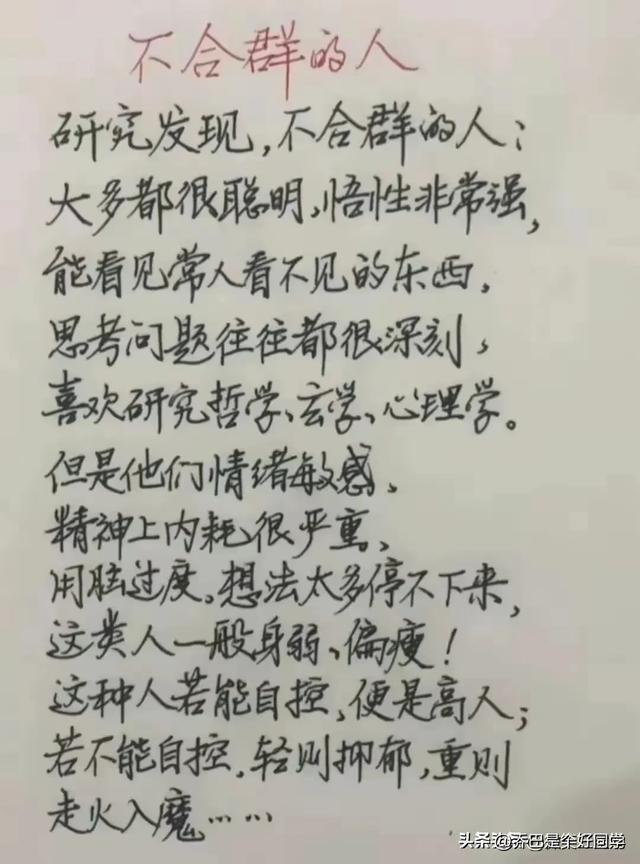 不合群的人
研究发现,不合群的人:
大多都很聪明,悟性非常强,
能看见常人看不见的东西,
思考问题往往都很深刻,
喜欢研究哲学、玄学、心理学。
但是他们情绪敏感、
精神上内耗很严重、
用脑过度。想法太多停不下来,
这类人一般身弱、偏瘦!
这种人若能自控,便是高人;
若不能自控,轻则抑郁,重则
走火入魔……